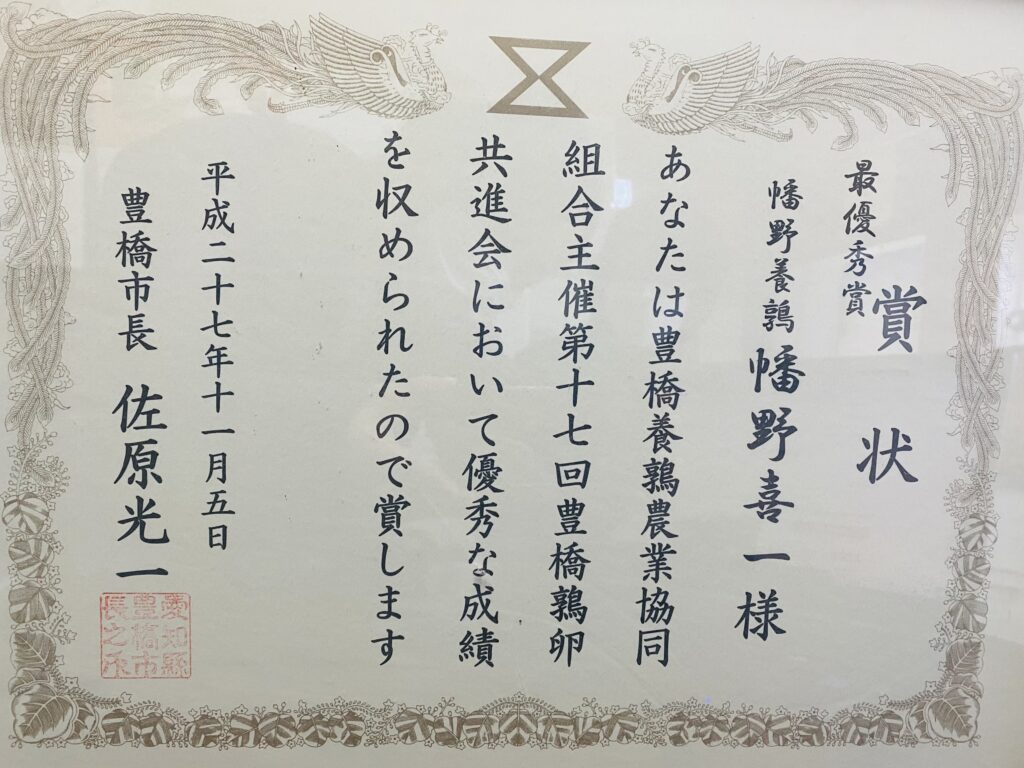 賞状
最優秀賞
幡野養鶉 幡野喜一様
あなたは豊橋養鶉農業協同
組合主催第十七回豊橋鶉卵
共進会において優秀な成績
を収められたので賞します
平成二十七年十一月五日
豊橋市長 佐原光一
愛知縣
豊橋市
長之印